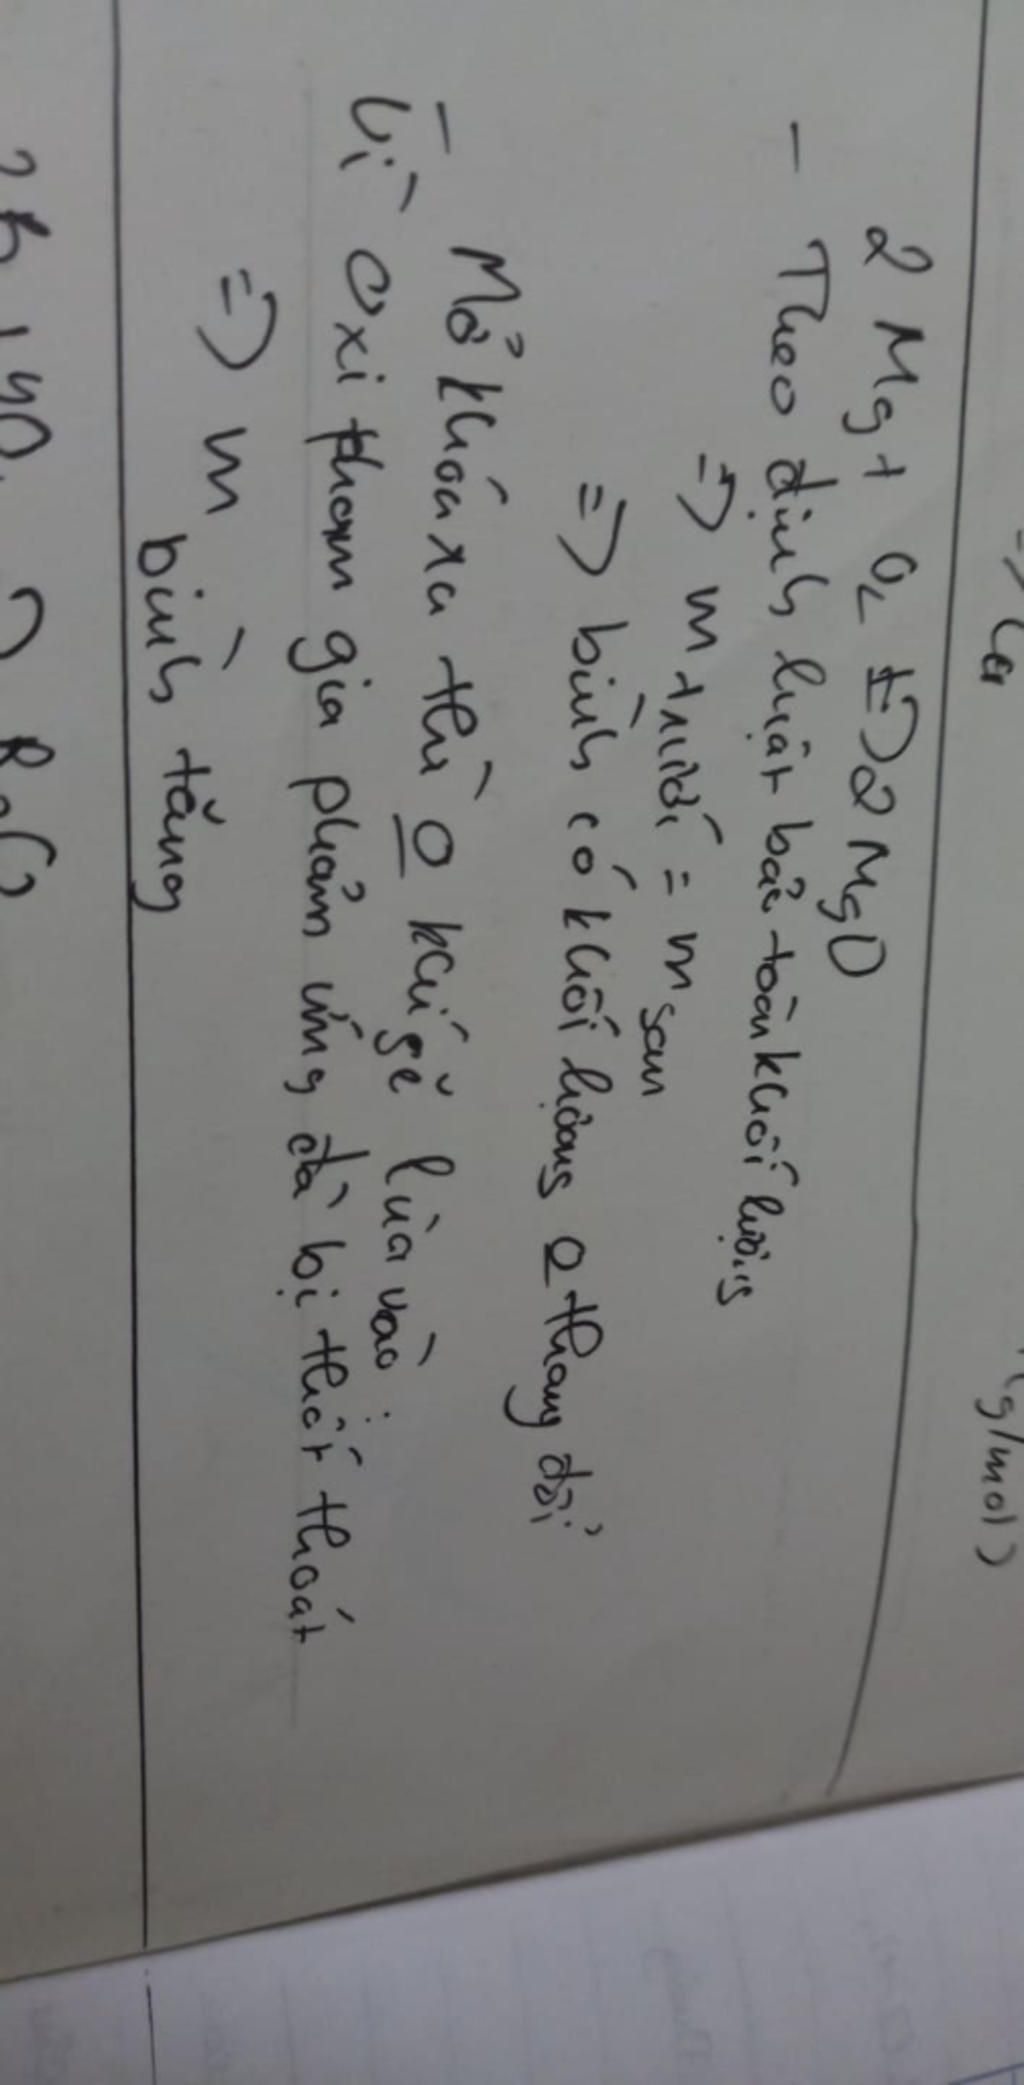 => Ca
g/mol)
2Mg + O2 t=> 2MgO
- Theo định luật bảo toàn khối lượng
=> m trước = m sau
=> bình có khối lượng o thay đổi
- Mở khóa ra thì o khí sẽ lùa vào
Vì oxi tham gia phản ứng đã bị thất thoát
=> m bình tăng